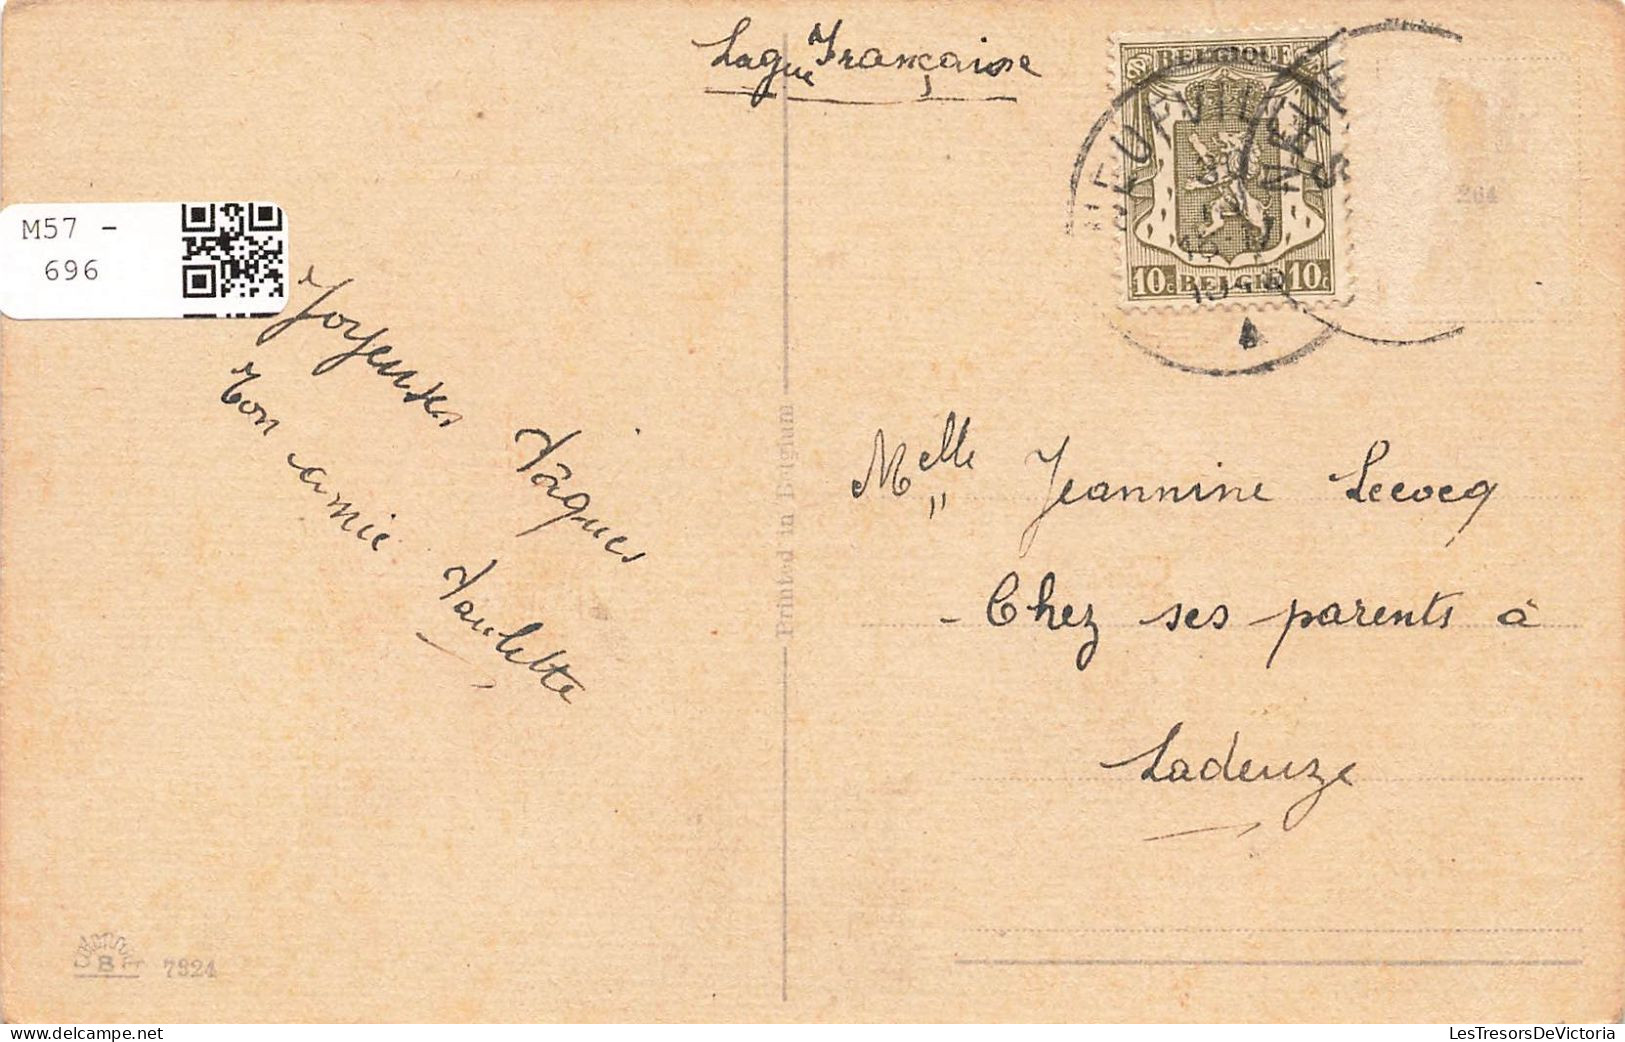 Lague Française
BELGIQUE
10c BELGIË 10c
M57 -
696
Joyeuses Pâques
Ton amie Paulette
Printed in Belgium
Melle Jeannine Lecocq
- Chez ses parents à
Ladeuze
B 7324
264
LesTresorsDeVictoria
delcampe.net